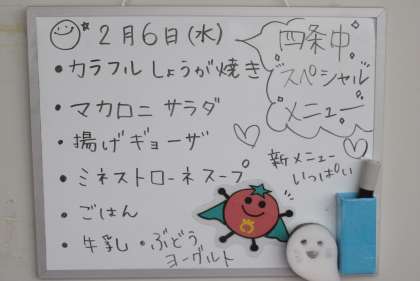 2月6日(水)
四条中
スペシャル
メニュー
・カラフルしょうが焼き
・マカロニサラダ
・揚げギョーザ
・ミネストローネスープ
・ごはん
・牛乳・ぶどう
ヨーグルト
新メニュー
いっぱい